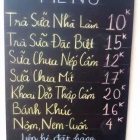 MENU
Trà Sữa Nhà Làm 10K
Trà Sữa Đặc Biệt 15K
Sữa Chua Nếp Cẩm 12K
Sữa Chua Mít 17K
Khoai Dẻo Thập Cẩm 20K
Bánh Khúc 16K
Nậm, Nem Lụi 4K